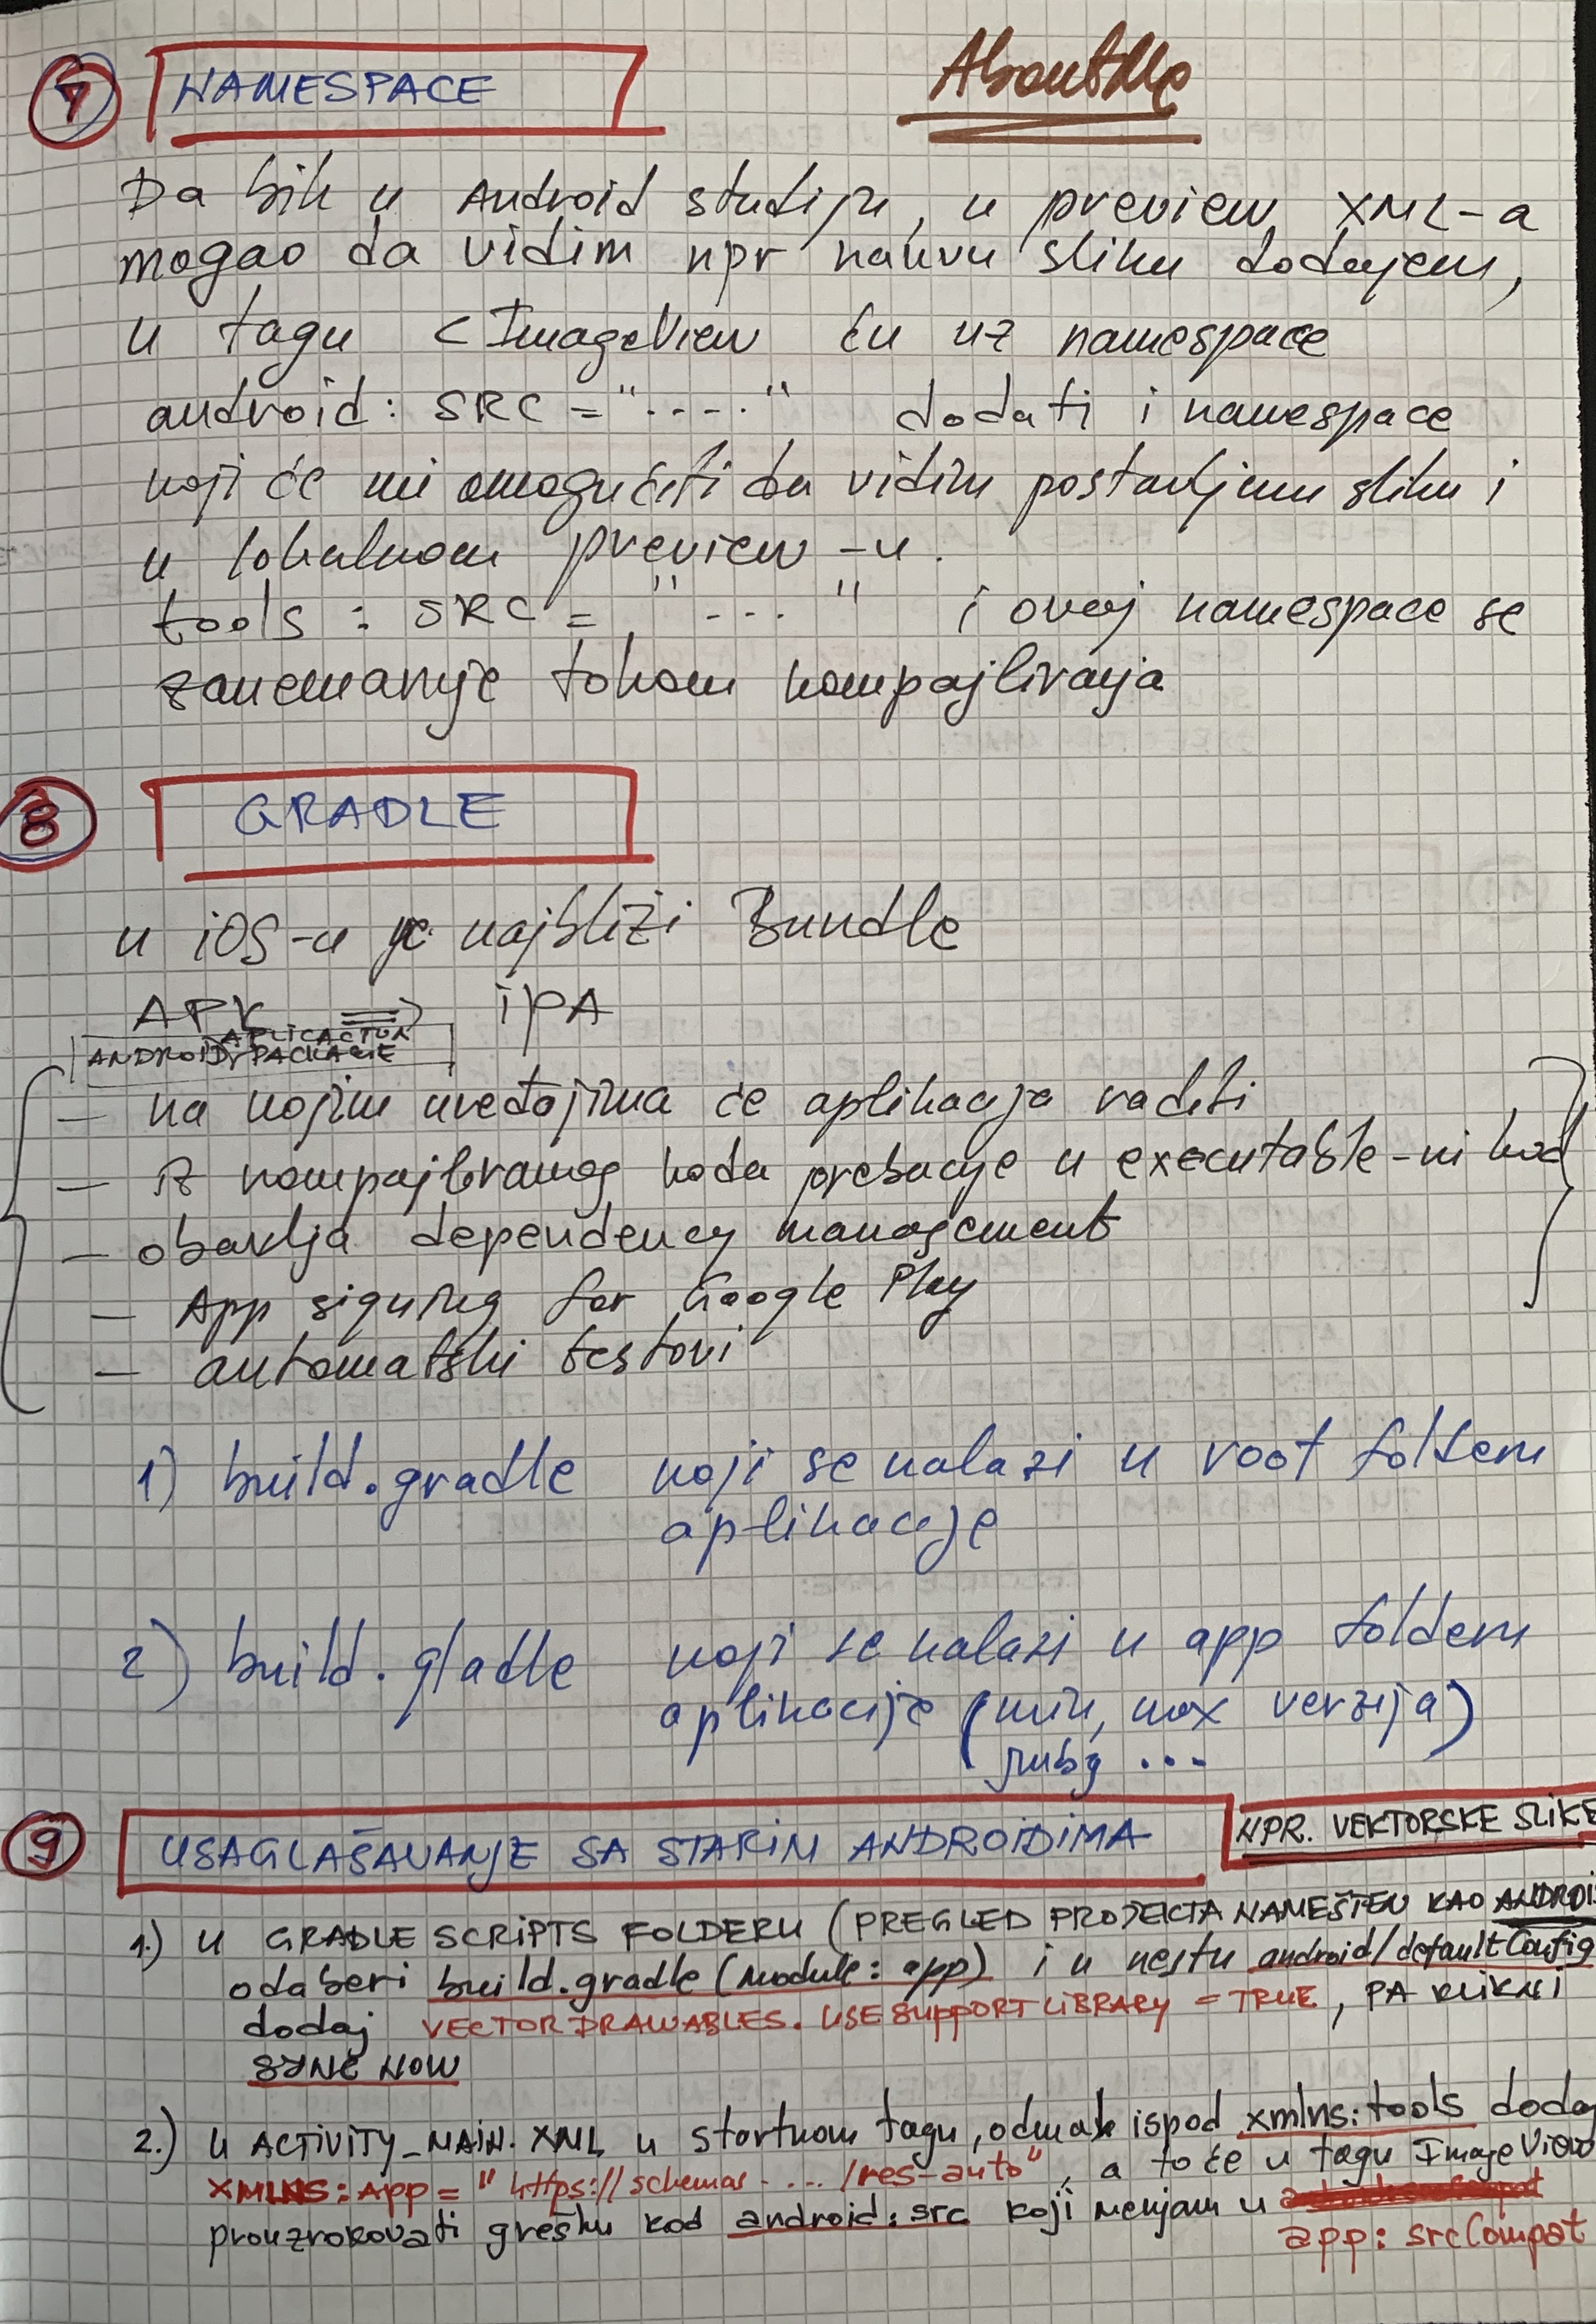 7 NAMESPACE
AboutMe
Da bih u Android studiju, u preview XML-a
mogao da vidim npr kakvu sliku dodajem,
u tagu <ImageView ću uz namespace
android: SRC = "....." dodati i namespace
koji će mi omogućiti da vidim postavljenu sliku i
u lokalnom preview-u.
tools : SRC = "---." i ovaj namespace se
zanemaruje tokom kompajliranja
8 GRADLE
u iOS-u je najbliži Bundle
APK ⇒ iPA
APLICATION
ANDROID PACKAGE
- na kojim uređajima će aplikacija raditi
- iz kompajliranog koda prebacuje u executable-ni kod
- obavlja dependency management
- App signing for Google Play
- automatski testovi
1) build.gradle koji se nalazi u root folderu
aplikacije
2) build.gladle koji se nalazi u app folderu
aplikacije (min, max verzija)
...
9 USAGLAŠAVANJE SA STARIM ANDROIDIMA
NPR. VEKTORSKE SLIKE
1.) U GRADLE SCRIPTS FOLDERU (PREGLED PROJEKTA NAMEŠTEN KAO ANDROI
odaberi build.gradle (Module: app) i u nestu android/defaultConfig
dodaj VECTORDRAWABLES.USESUPPORTLIBRARY = TRUE, PA KLIKNI
SYNC NOW
2.) U ACTIVITY_MAIN.XML u startnom tagu, odmah ispod xmlns:tools dodaj
XMLNS:APP = "https://schemas..... /res-auto", a to će u tagu ImageView
prouzrokovati grešku kod android:src koji menjam u
app: srcCompat